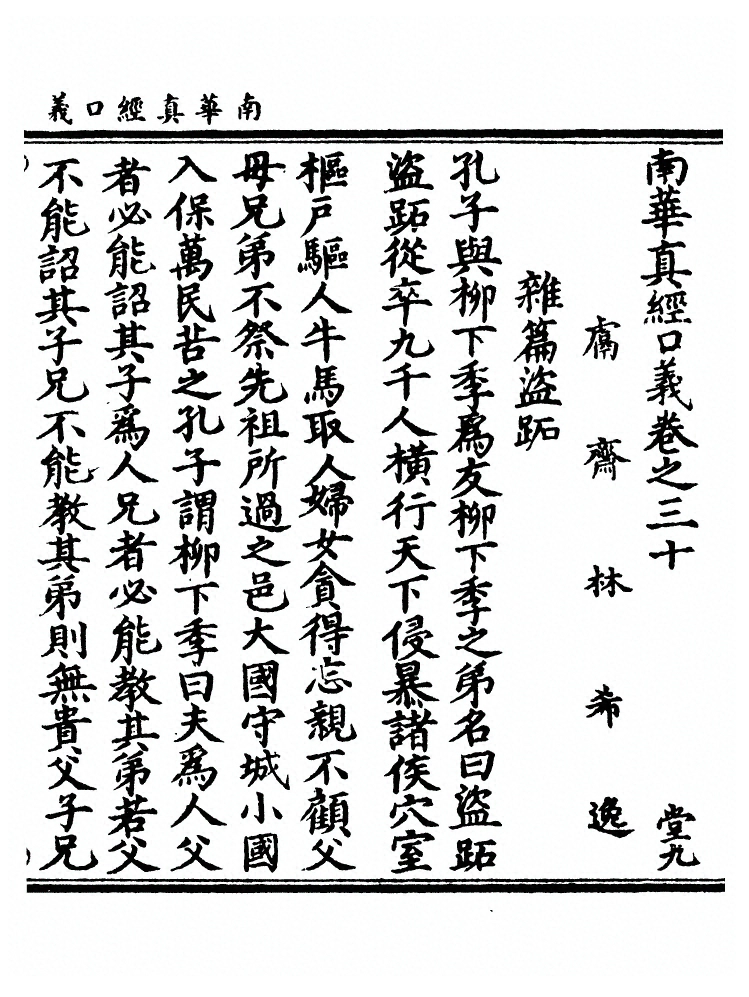 南華真經口義
南華真經口義卷之三十 堂九
鬳齋林希逸
雜篇盜跖
孔子與柳下季爲友柳下季之弟名曰盜跖
盜跖從卒九千人橫行天下侵暴諸侯穴室
樞戶驅人牛馬取人婦女貪得忘親不顧父
母兄弟不祭先祖所過之邑大國守城小國
入保萬民苦之孔子謂柳下季曰夫爲人父
者必能詔其子爲人兄者必能教其弟若父
不能詔其子兄不能教其弟則無貴父子兄